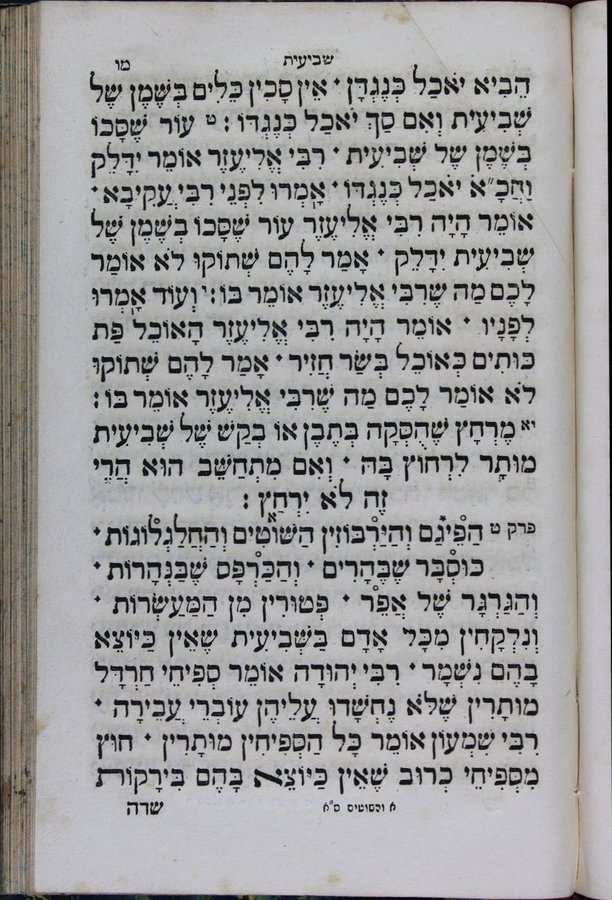 שביעית מו
הֵבִיא יֹאכַל כְּנֶגְדָּן · אֵין סָכִין כֵּלִים בְּשֶׁמֶן שֶׁל
שְׁבִיעִית וְאִם סַךְ יֹאכַל כְּנֶגְדּוֹ : ט עוֹר שֶׁסָּכוֹ
בְּשֶׁמֶן שֶׁל שְׁבִיעִית · רִבִּי אֱלִיעֶזֶר אוֹמֵר יִדָּלֵק
וַחֲכָ״א יֹאכַל כְּנֶגְדּוֹ · אָמְרוּ לִפְנֵי רִבִּי עֲקִיבָא ·
אוֹמֵר הָיָה רִבִּי אֱלִיעֶזֶר עוֹר שֶׁסָּכוֹ בְּשֶׁמֶן שֶׁל
שְׁבִיעִית יִדָּלֵק · אָמַר לָהֶם שְׁתוֹקוּ לֹא אוֹמַר
לָכֶם מַה שֶׁרִבִּי אֱלִיעֶזֶר אוֹמֵר בּוֹ : י וְעוֹד אָמְרוּ
לְפָנָיו · אוֹמֵר הָיָה רִבִּי אֱלִיעֶזֶר הָאוֹכֵל פַּת
כּוּתִים כְּאוֹכֵל בְּשַׂר חֲזִיר · אָמַר לָהֶם שְׁתוֹקוּ
לֹא אוֹמַר לָכֶם מַה שֶׁרִבִּי אֱלִיעֶזֶר אוֹמֵר בּוֹ :
יא מֶרְחָץ שֶׁהֻסְּקָה בְּתֶבֶן אוֹ בְקַשׁ שֶׁל שְׁבִיעִית
מוּתָּר לִרְחוֹץ בָּהּ · וְאִם מִתְחַשֵּׁב הוּא הֲרֵי
זֶה לֹא יִרְחַץ :
פרק ט הַפֵּיגַם וְהַיַּרְבּוּזִין הַשּׁוֹטִים וְהַחֲלַגְלוֹגוֹת ·
כּוּסְבָּר שֶׁבֶּהָרִים · וְהַכַּרְפָּס שֶׁבַּנְּהָרוֹת ·
וְהַגַּרְגָּר שֶׁל אֲפָר · פְּטוּרִין מִן הַמַּעַשְׂרוֹת ·
וְנִלְקָחִין מִכָּל אָדָם בַּשְּׁבִיעִית שֶׁאֵין כַּיּוֹצֵא
בָּהֶם נִשְׁמָר · רִבִּי יְהוּדָה אוֹמֵר סְפִיחֵי חַרְדָּל
מוּתָּרִין שֶׁלֹּא נֶחְשְׁדוּ עֲלֵיהֶן עוֹבְרֵי עֲבֵירָה ·
רִבִּי שִׁמְעוֹן אוֹמֵר כָּל הַסְּפִיחִין מוּתָּרִין · חוּץ
מִסְּפִיחֵי כְרוּב שֶׁאֵין כַּיּוֹצֵא בָּהֶם בִּירָקוֹת
א והסוטים ס"א שדה